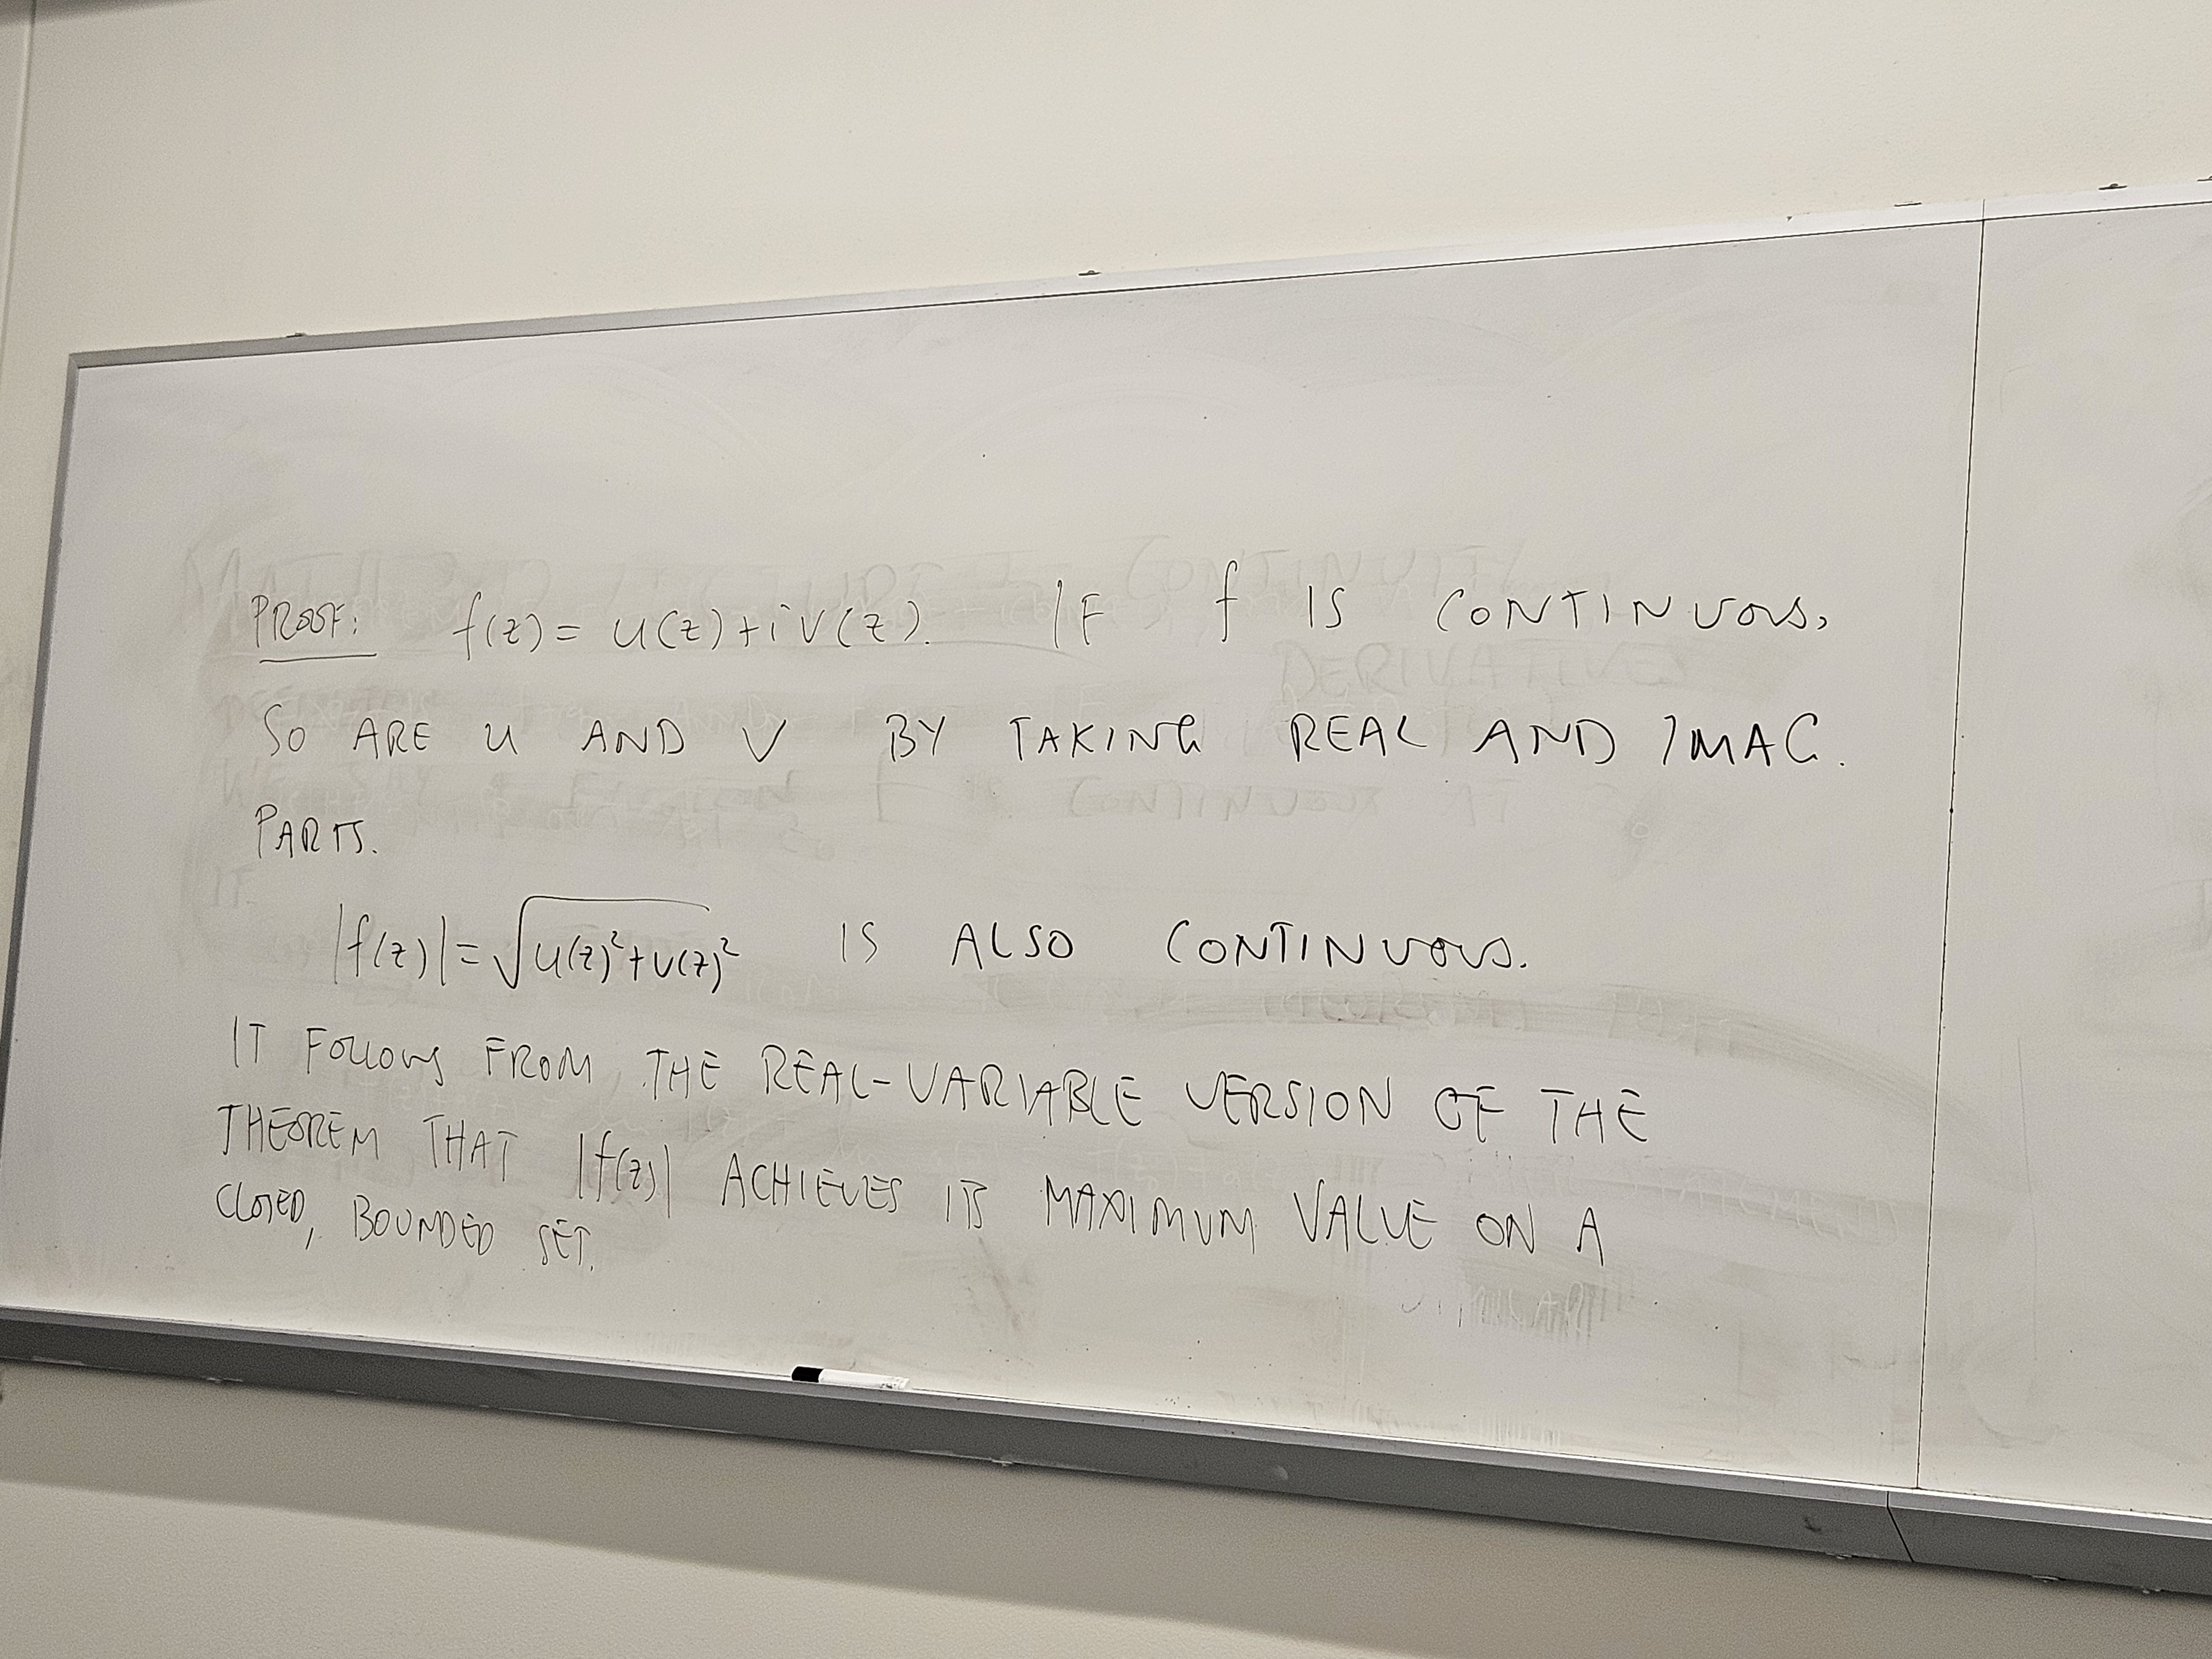 PROOF: f(z) = u(z) + i v(z). IF f IS CONTINUOUS,
SO ARE u AND v BY TAKING REAL AND IMAG.
PARTS.
|f(z)| = √(u(z)² + v(z)²) IS ALSO CONTINUOUS.
IT FOLLOWS FROM THE REAL-VARIABLE VERSION OF THE
THEOREM THAT |f(z)| ACHIEVES ITS MAXIMUM VALUE ON A
CLOSED, BOUNDED SET.